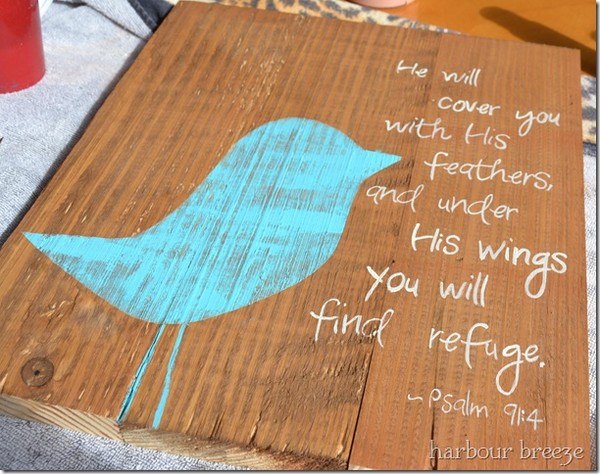 He will
cover you
with His
feathers,
and under
His wings
you will
find refuge.
~Psalm 91:4
harbour breeze